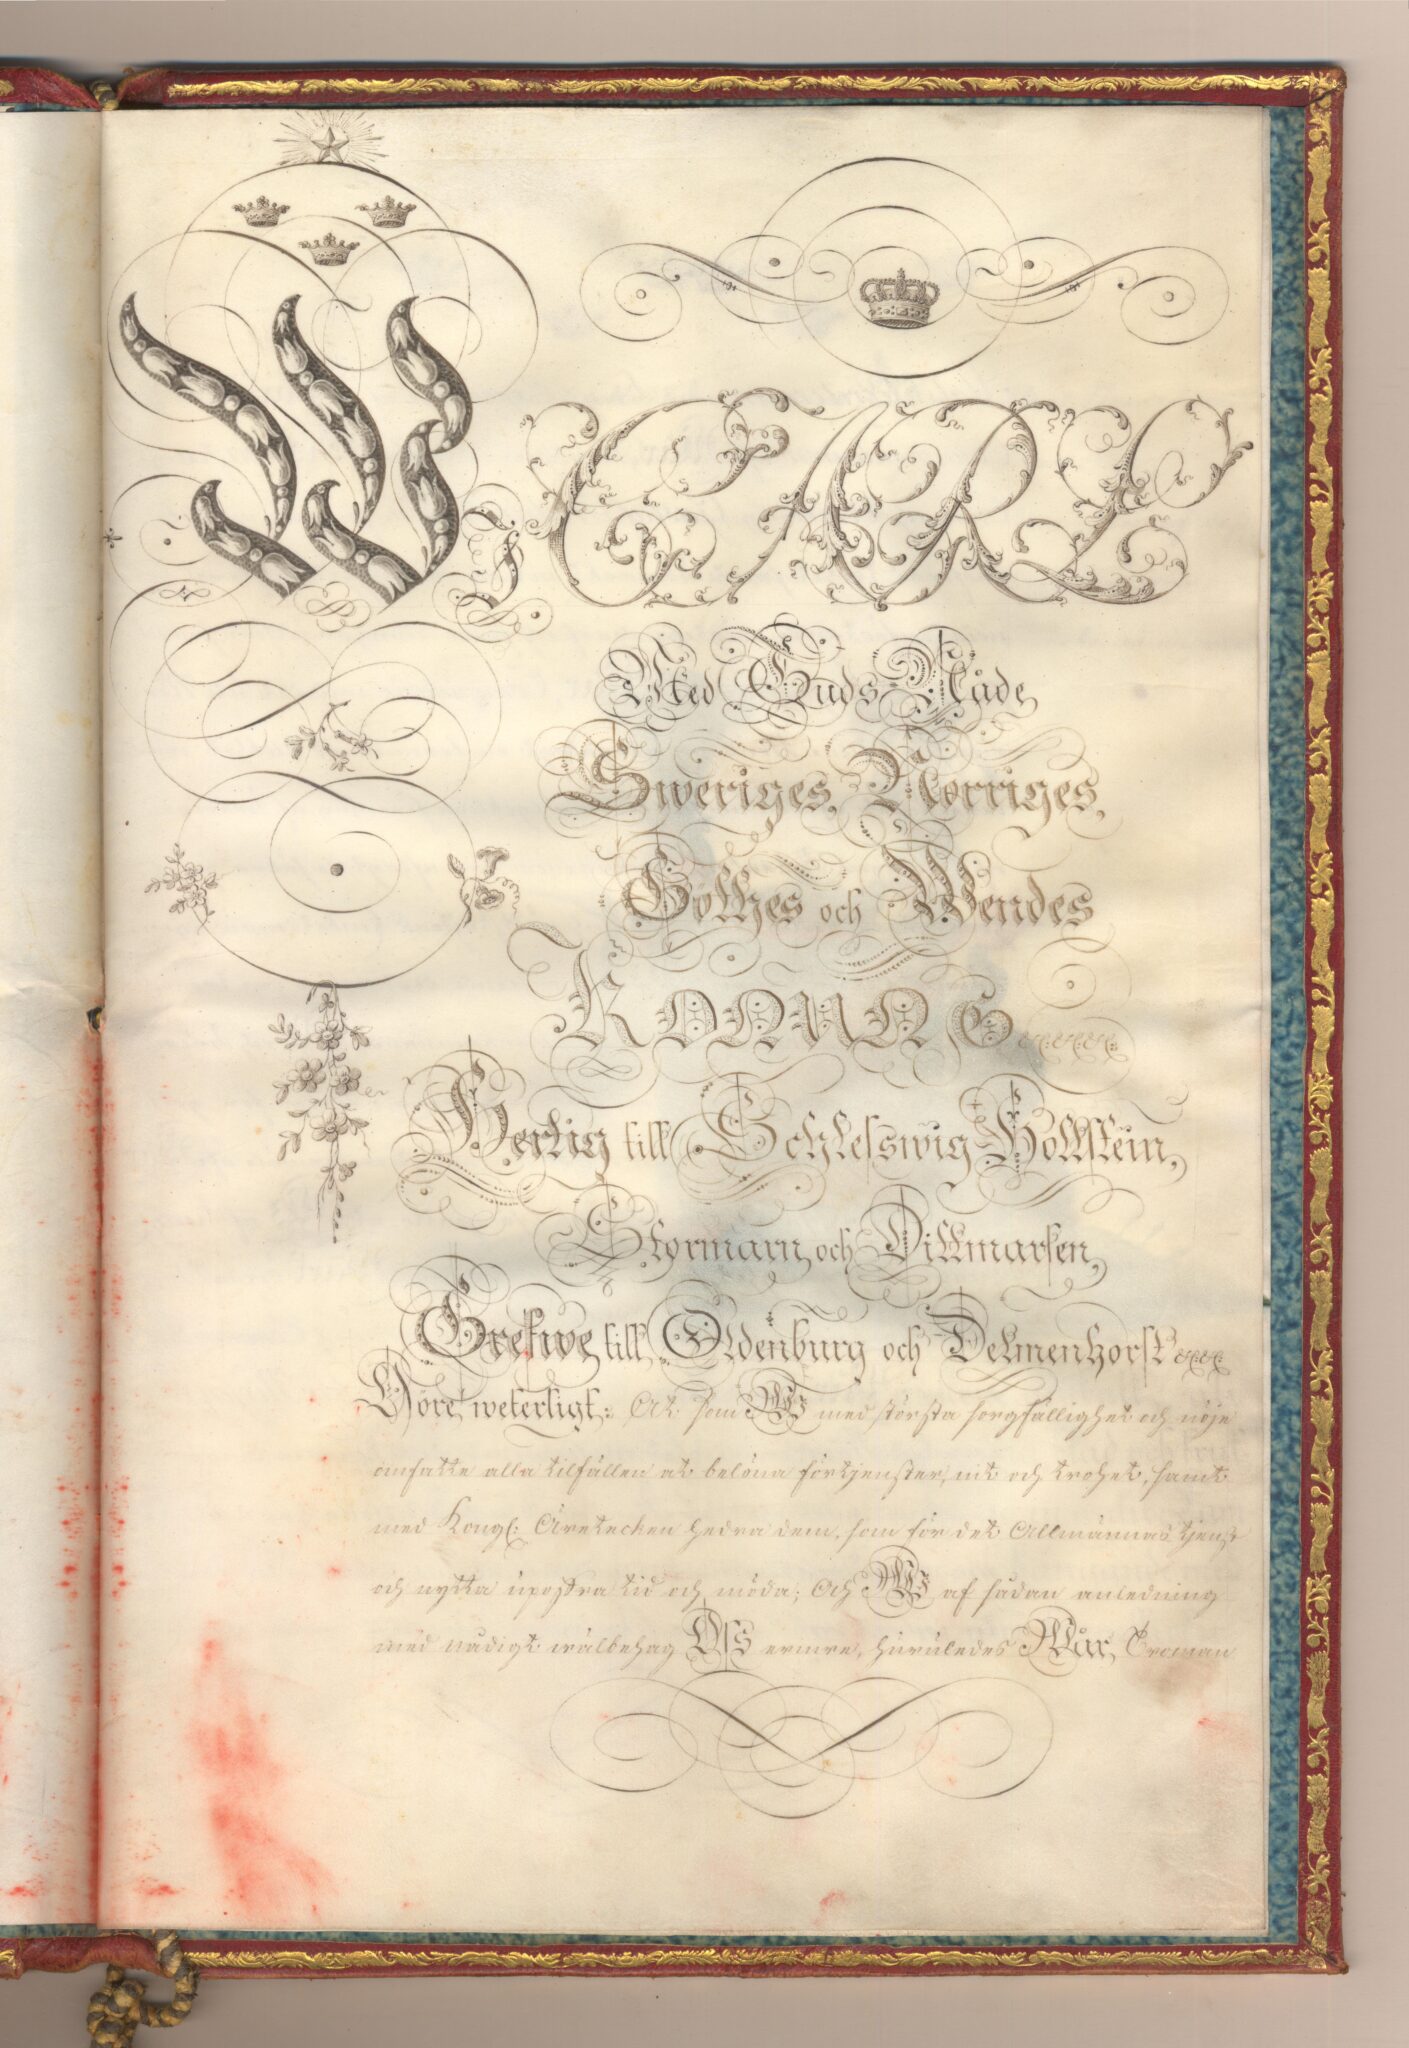 Wi CARL
Med Guds Nåde,
Sweriges, Norriges,
Göthes och Wendes
KONUNG &c. &c. &c.
Hertig till Schleswig Hollstein,
Stormarn och Dittmarsen,
Grefwe till Oldenburg och Delmenhorst &c. &c.
Göre weterligt: At som Wi med största sorgfällighet och nöje
omfatte alla tilfällen at belöna förtjenster, nit och trohet, samt
med Kongl: Äretecken hedra dem, som för det Allmännas tjenst
och nytta upoffra tid och möda; Och Wi af sådan anledning
med nådigt wälbehag Oss ermre, huruledes Wår, Troman